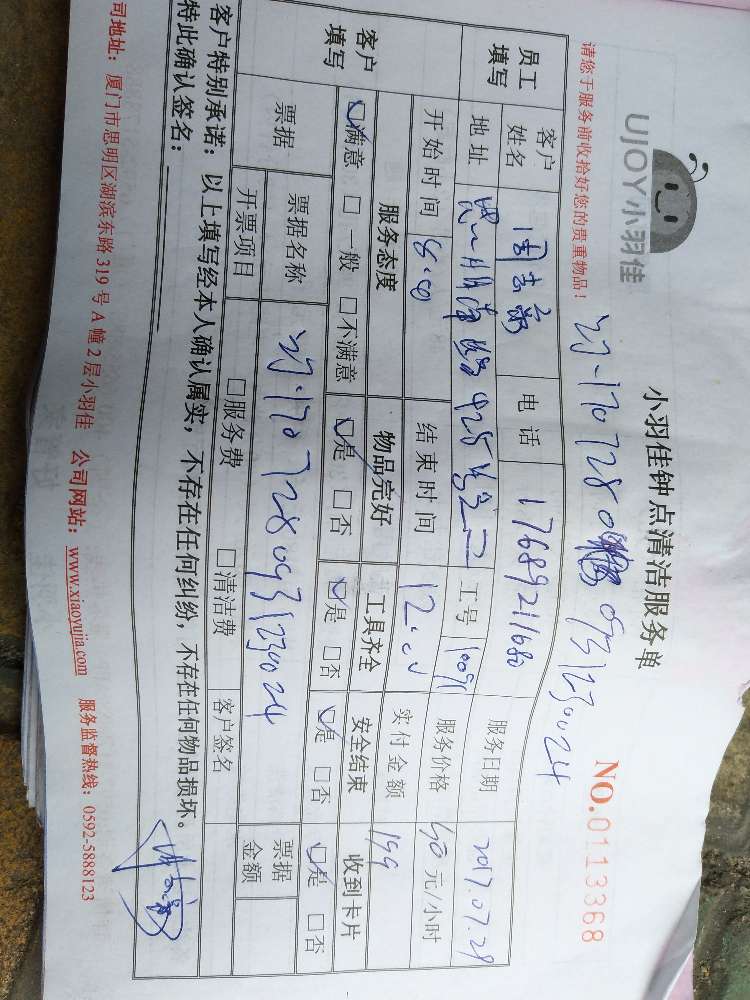 UJOY小羽佳
小羽佳钟点清洁服务单
NO.0113368
请您于服务前收拾好您的贵重物品！
员工填写 客户姓名 电话 17689211680 服务日期 2017.07.29
地址 425号 工号 服务价格 50元/小时
客户填写 开始时间 8:00 结束时间 12:00 实付金额 199
服务态度 物品完好 工具齐全 安全结束 收到卡片
☑满意 □一般 □不满意 ☑是 □否 ☑是 □否 ☑是 □否 ☑是 □否
票据 票据名称 票据金额
开票项目 □服务费 □清洁费 客户签名
客户特别承诺：以上填写经本人确认属实，不存在任何纠纷，不存在任何物品损坏。
特此确认签名：
司地址：厦门市思明区湖滨东路319号A幢2层小羽佳 公司网站：www.xiaoyujia.com 服务监督热线：0592-5888123